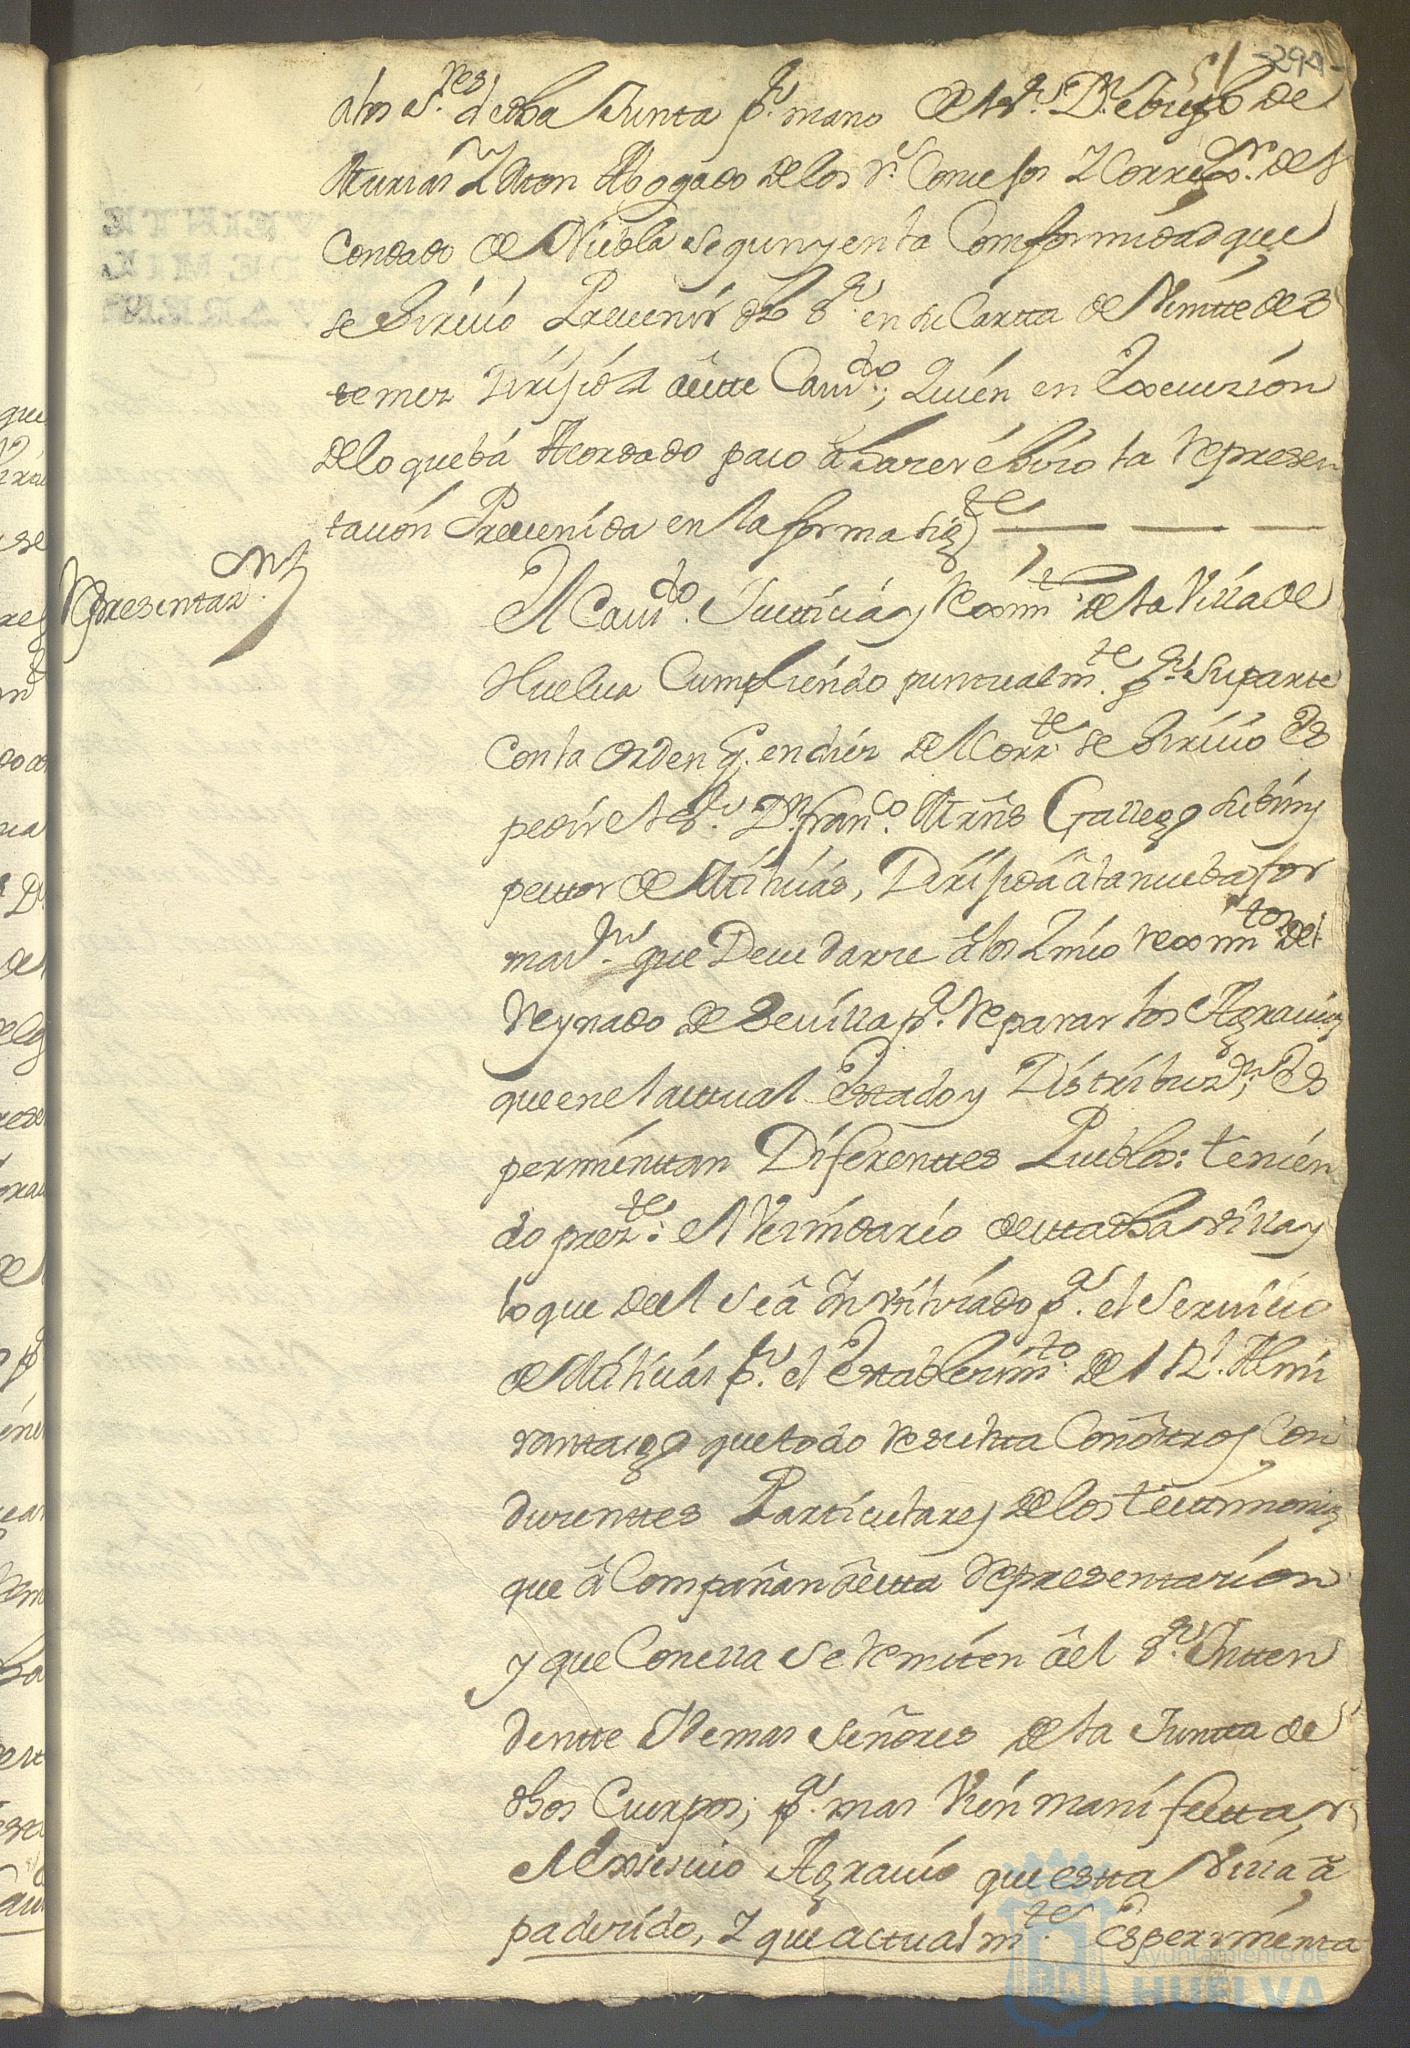 51 294
a los S.res de dha Junta p.r mano de el s.r D.n
Asturias Y Abogado de los R.s Consejos Y Correx.or del
Condado de Niebla segun y en la Comformidad que
se Sirvio Prevenir dho S.r en su Cartta de Veintte de
de mes Dirijida â estte Cav.do; Quién en Execuzión
de lo que ba Acordado paso â hacer é hizo la Represen
tazión Prevenida en la forma sig.te
Representaz.n
El Cav.do Justicia y Reximi.to de la Villa de
Huelva Cumpliéndo puntualm.te p.r su parte
con la orden q. en diez del Corr.te se Sirvió Es
pedir el S.r D.n Fran.co Mrñs Gallego subins
pecttor de Milicias, Dirijida â la nueba for
maz.n que Deve darse â los Zinco reximi.tos del
Reynado de Sevilla p.a Reparar los Agravios
que en el acttual Estado y Distribuz.n, Es
perimenttan Diferenttes Pueblos: tenién
do prez.te el Vezindario de estta dha villa y
lo que de el se â p.a el Servicio
de Milicias p.r el Establezim.to del R.l Almi
rantazgo que todo resultta Con ôttros Con
duzenttes Particulares de los testtimonios
que â Compañan â estta representazion
y que Con ella Se remiten âel S.r Intten
dentte Y demas Señores de la Juntta de
dhos Cuerpos; p.a mas Vién manifesttar
el Exsesivo Agravio que estta villa â
padezido, Y que actualm.te Esperimenta
Ayuntamiento de
HUELVA